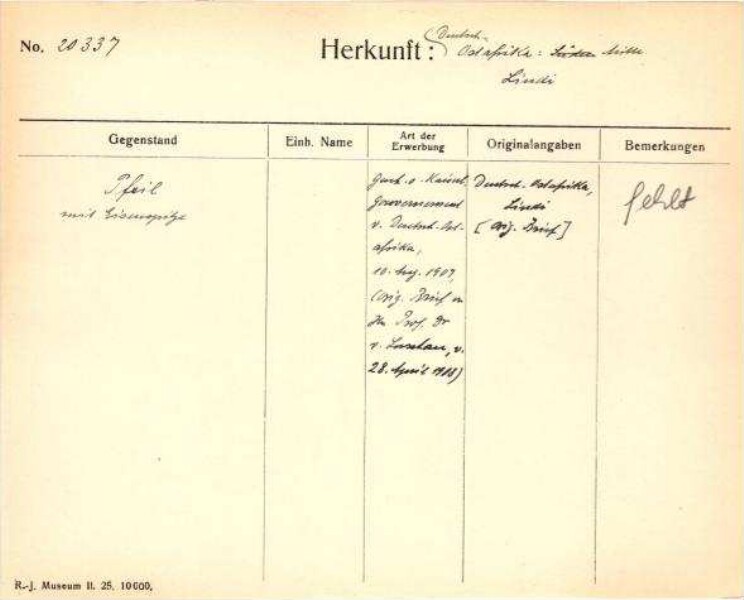 No. 20337
Herkunft: Deutsch-
Ostafrika: Süden Mitte
Lindi
Gegenstand
Einh. Name
Art der
Erwerbung
Originalangaben
Bemerkungen
Pfeil
mit Eisenspitze
Kaiserl.
Gouvernement
v. Deutsch-Ost-
afrika,
10. 1907,
(Orig. Brief
Prof. Dr
v. Luschan, v.
28. April 1908)
Deutsch-Ostafrika,
Lindi
[Orig. Brief]
fehlt
R.-J. Museum II. 25. 10000.